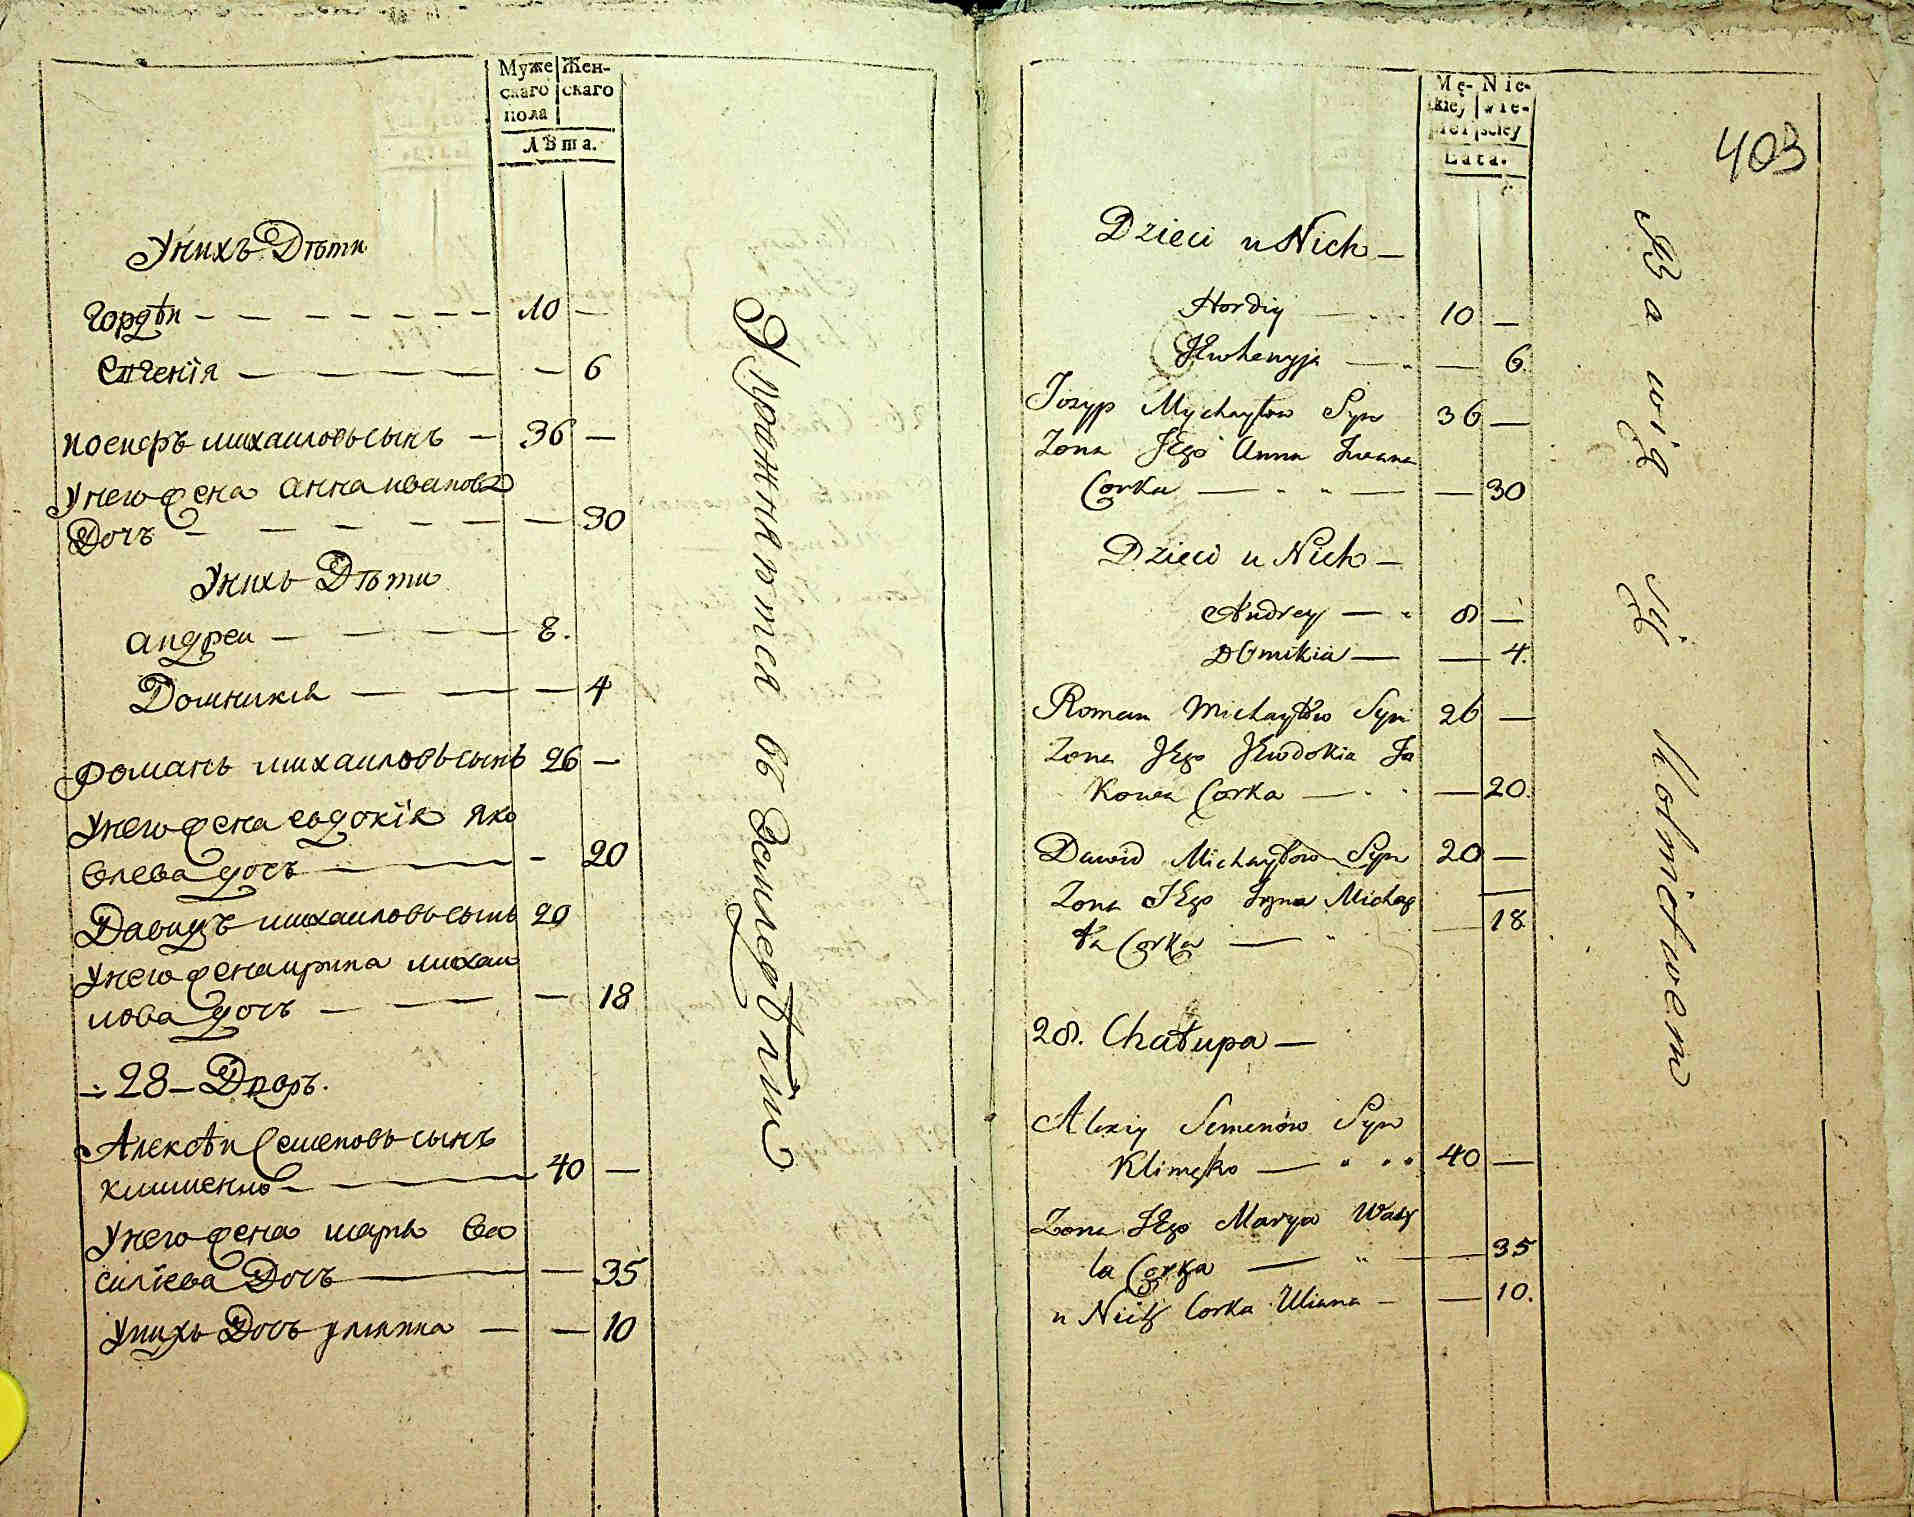 Муже Жен-
скаго скаго
пола
лѣта.
Унихъ Дѣти
Гордѣи — — — — — — 10 —
Евгенія — — — — — 6
иосифъ михаиловъ сынъ — 36 —
Унего жена анна иванова
Дочь — — — — — — 30
Унихъ Дѣти
андреи — — — — 8.
Домникія — — — — 4
романъ михаиловъ сынъ 26 —
Унего жена евдокія яко
влева дочь — — — 20
Давидъ михаиловъ сынъ 20
Унего жена ирина михаи
лова дочь — — — — 18
28 — Дворъ.
Алексѣи Семеновъ сынъ
клименко — — — 40 —
Унего жена марья Ва
силіева Дочь — — 35
Унихъ Дочь улияна — — 10
Упражняются въ Земледѣліи
Mę- Nie-
skiey wie-
płci sciey
Lata.
403
Dzieci u Nich —
Hordiy — 10 —
Jewhenyja — — 6.
Jozyp Mychayłow Syn 36 —
Zona Jego Anna Iwana
Corka — — — 30
Dzieci u Nich —
Andrey — 8 —
Domikia — — 4.
Roman Michayłow Syn 26 —
Zona Jego Jewdokia Ja
Kowa Corka — — 20.
Dawid Michayłow Syn 20 —
Zona Jego Iryna Michay
ła Corka — — 18
28. Chałupa —
Alexiy Semenów Syn
Klimęko — 40 —
Zona Jego Marya Wasy
la Corka — — 35
u Nich Corka Uliana — — 10.
Bawią się Rolnictwem